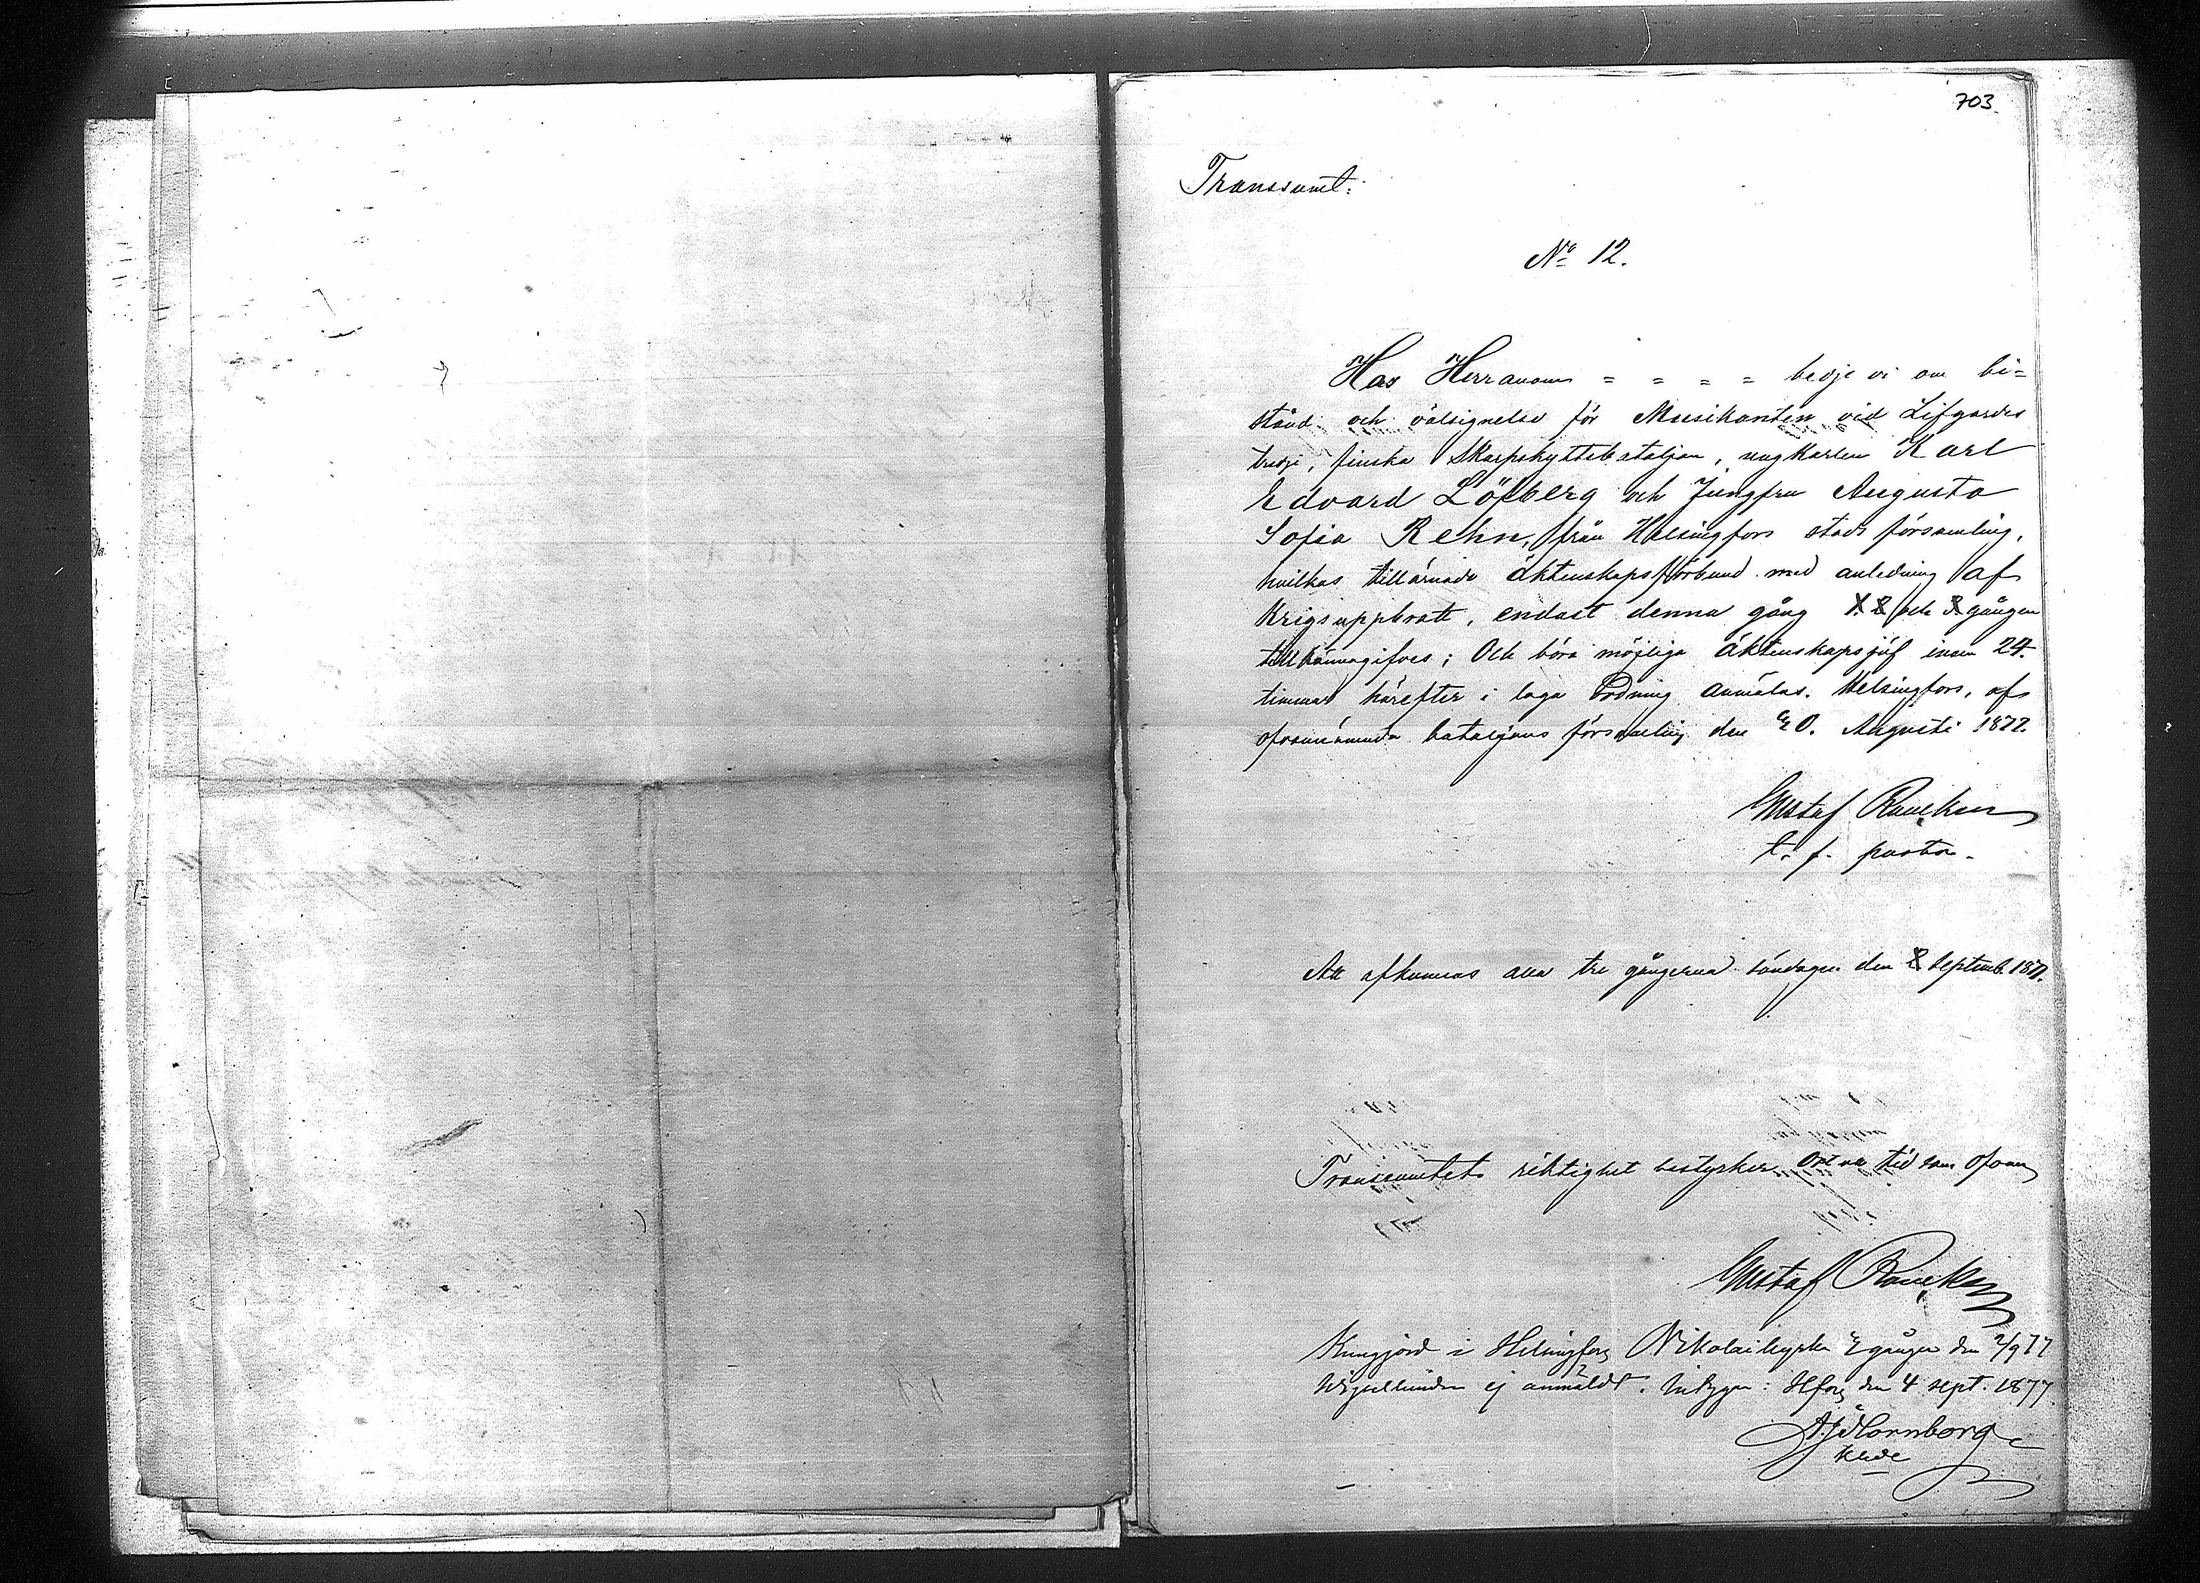 703.
Transsumt:
No 12.
Hos Herranom = = = = bedje vi om bi=
stånd och välsignelse för Musikanten vid Lifgardes
tredje, finska Skarpskyttebataljon, ungkarlen Karl
Edvard Löfberg och Jungfru Augusta
Sofia Rehn, från Helsingfors stads församling,
hvilkas tillärnade äktenskapsförbund med anledning af
Krigsuppbrott, endast denna gång 1. 2 och 3 gången
tillkännagifves; Och böra möjliga äktenskapsjäf inom 24.
timmar härefter i laga ordning anmälas. Helsingfors, af
ofvannämnda bataljons församling den 20. Augusti 1877.
Gustaf
t. f. pastor.
Att afkunnas alla tre gångerna söndagen den 2 Septemb. 1877.
Transsumtets riktighet bestyrker Ort och tid som ofvan
Gustaf
Kungjord i Helsingfors Nikolai kyrka gången den 2/9 77
ej anmäldt. Intygar: Hfors den 4 sept. 1877.
A. J. Hornborg